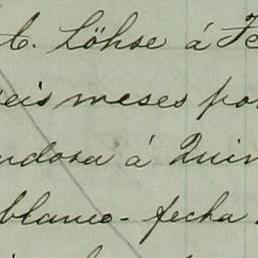 C. Löhse á Fe
eis meses por
ndosa á Quin
blanco - fecha